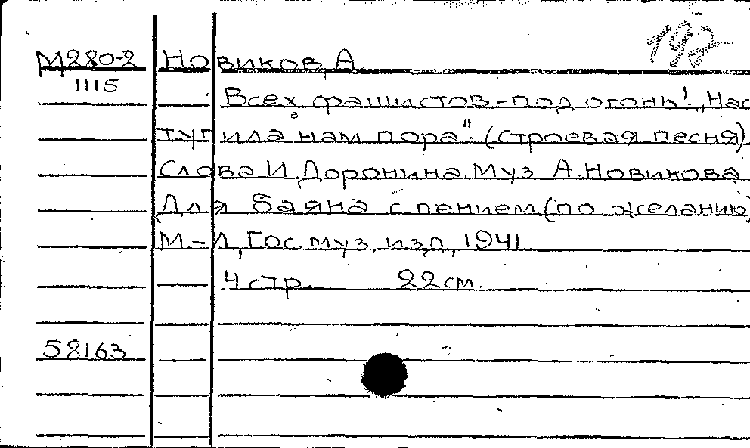 192
М280-2 Новиков, А.
1115
Всех фашистов - под огонь! "Нас
тупила нам пора". (строевая песня).
Слова И. Доронина. Муз. А. Новикова
Для баяна с пением (по желанию)
М-Л, Гос. муз. изд., 1941
4 стр. 22 см.
58163